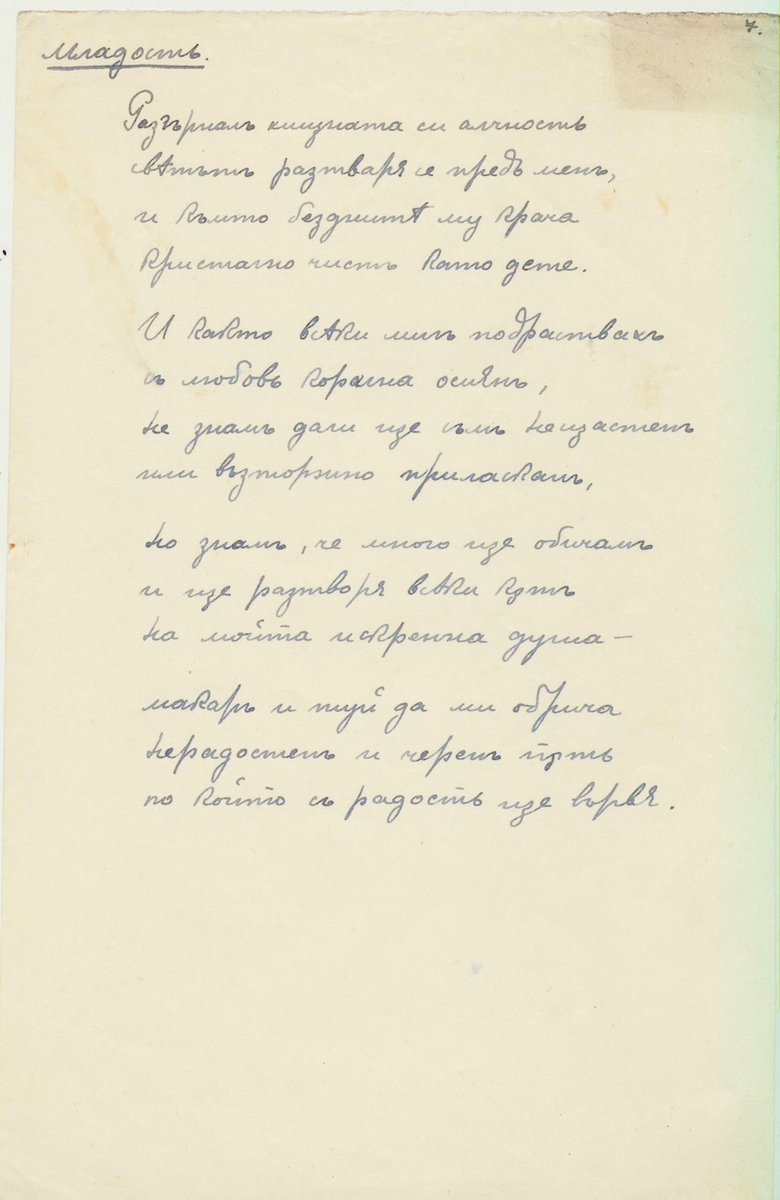 7.
Младость.
Разгърналъ хищната си алчность
свѣтътъ разтваря се предъ менъ,
и къмто безднитѣ му крача
кристално чистъ като дете.
И както всѣки мигъ подраствахъ
съ любовь корална осиянъ,
не знамъ дали ще съмъ нещастенъ
или възторжно приласканъ,
но знамъ, че много ще обичамъ
и ще разтворя всѣки кѫтъ
на мойта искренна душа —
макаръ и туй да ми обрича
нерадостенъ и черенъ пѫть
по който съ радость ще вървя.